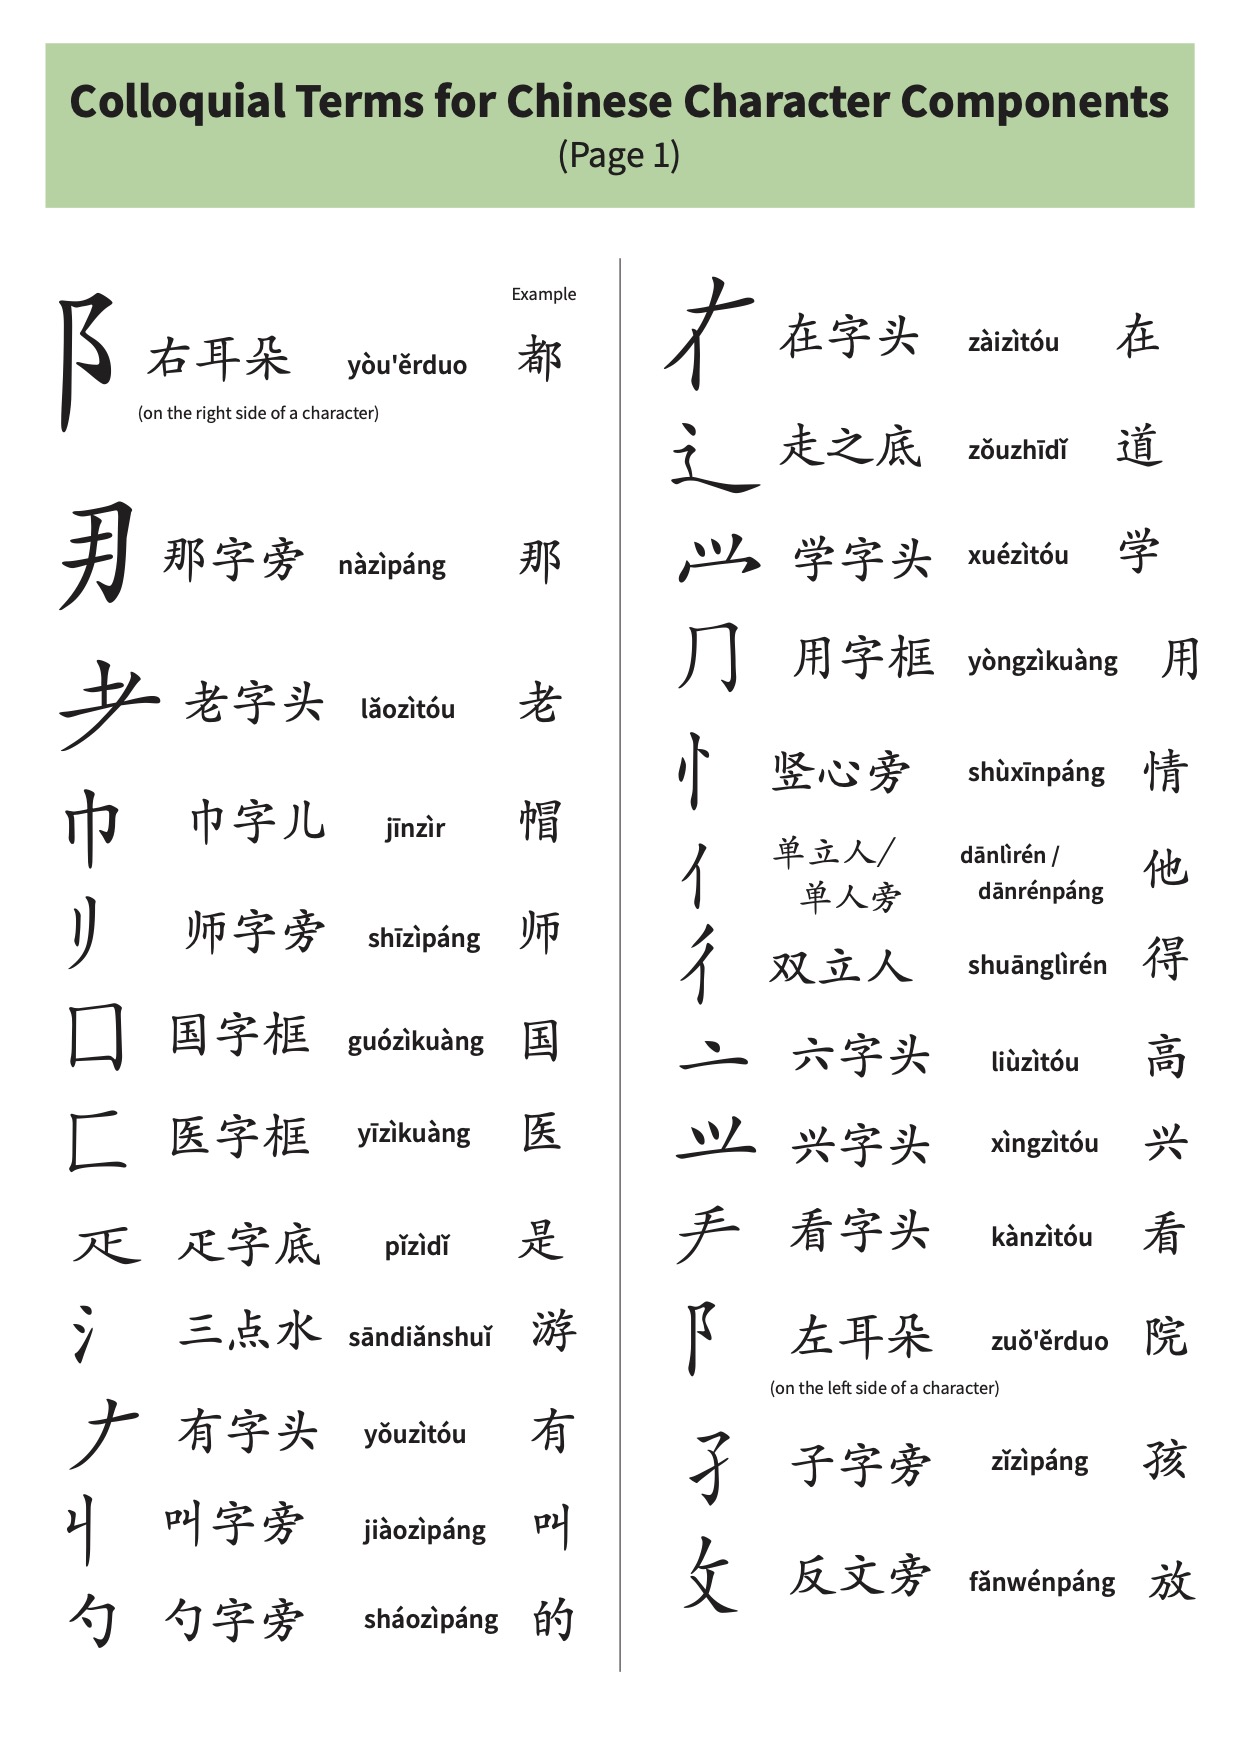 Colloquial Terms for Chinese Character Components
(Page 1)
Example
阝 右耳朵 yòu'ěrduo 都
(on the right side of a character)
那字旁 nàzìpáng 那
耂 老字头 lǎozìtóu 老
巾 巾字儿 jīnzìr 帽
刂 师字旁 shīzìpáng 师
囗 国字框 guózìkuàng 国
匚 医字框 yīzìkuàng 医
疋字底 pǐzìdǐ 是
氵 三点水 sāndiǎnshuǐ 游
𠂇 有字头 yǒuzìtóu 有
丩 叫字旁 jiàozìpáng 叫
勺 勺字旁 sháozìpáng 的
在字头 zàizìtóu 在
辶 走之底 zǒuzhīdǐ 道
𭕄 学字头 xuézìtóu 学
⺆ 用字框 yòngzìkuàng 用
忄 竖心旁 shùxīnpáng 情
亻 单立人/ dānlìrén / 他
单人旁 dānrénpáng
彳 双立人 shuānglìrén 得
亠 六字头 liùzìtóu 高
兴字头 xìngzìtóu 兴
龵 看字头 kànzìtóu 看
阝 左耳朵 zuǒ'ěrduo 院
(on the left side of a character)
孑 子字旁 zǐzìpáng 孩
攵 反文旁 fǎnwénpáng 放